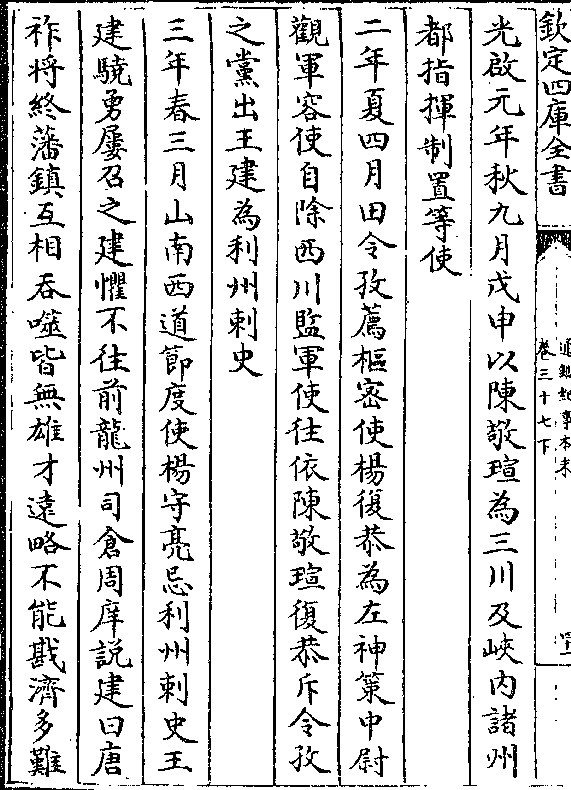 欽定四庫全書
通鑑紀事本末
卷三十七下
光啟元年秋九月戊申以陳敬瑄為三川及峽内諸州
都指揮制置等使
二年夏四月田令孜薦樞密使楊復恭為左神策中尉
觀軍容使自除西川監軍使往依陳敬瑄復恭斥令孜
之黨出王建為利州刺史
三年春三月山南西道節度使楊守亮忌利州刺史王
建驍勇屢召之建懼不往前龍州司倉周庠説建曰唐
祚將終藩鎮互相吞噬皆無雄才遠略不能戡濟多難